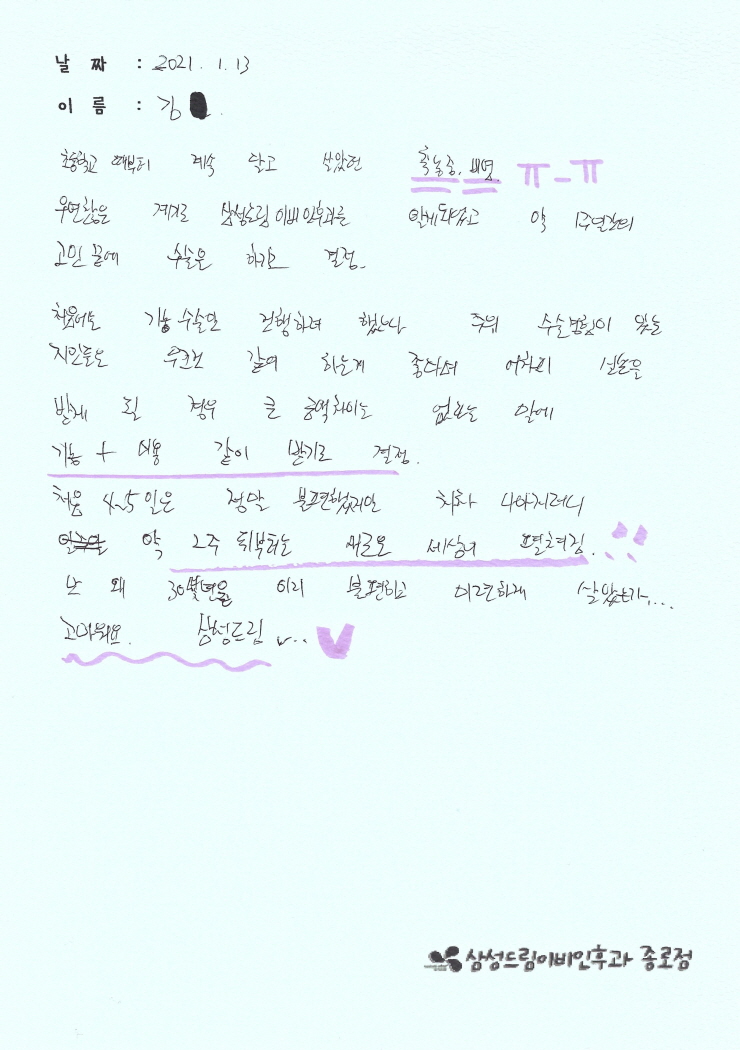 날 짜 : 2021. 1. 13
이 름 : 김
초등학교 때부터 계속 달고 살았던 축농증, 비염. ㅠ_ㅠ
우연찮은 계기로 삼성드림이비인후과를 알게되었고 약 1주일간의
고민 끝에 수술을 하기로 결정.
처음에는 기능 수술만 진행하려 했으나 주위 수술경험이 있는
지인들도 무조건 같이 하는게 좋다며 어차피 수술을
받게 될 경우 큰 금액차이는 없다는 말에
기능 + 미용 같이 받기로 결정.
처음 4~5일은 정말 불편했지만 차차 나아지더니
약 2주 뒤부터는 새로운 세상이 펼쳐짐.
난 왜 30몇년을 이리 불편하고 미련하게 살았는가....
고마워요. 삼성드림
삼성드림이비인후과 종로점